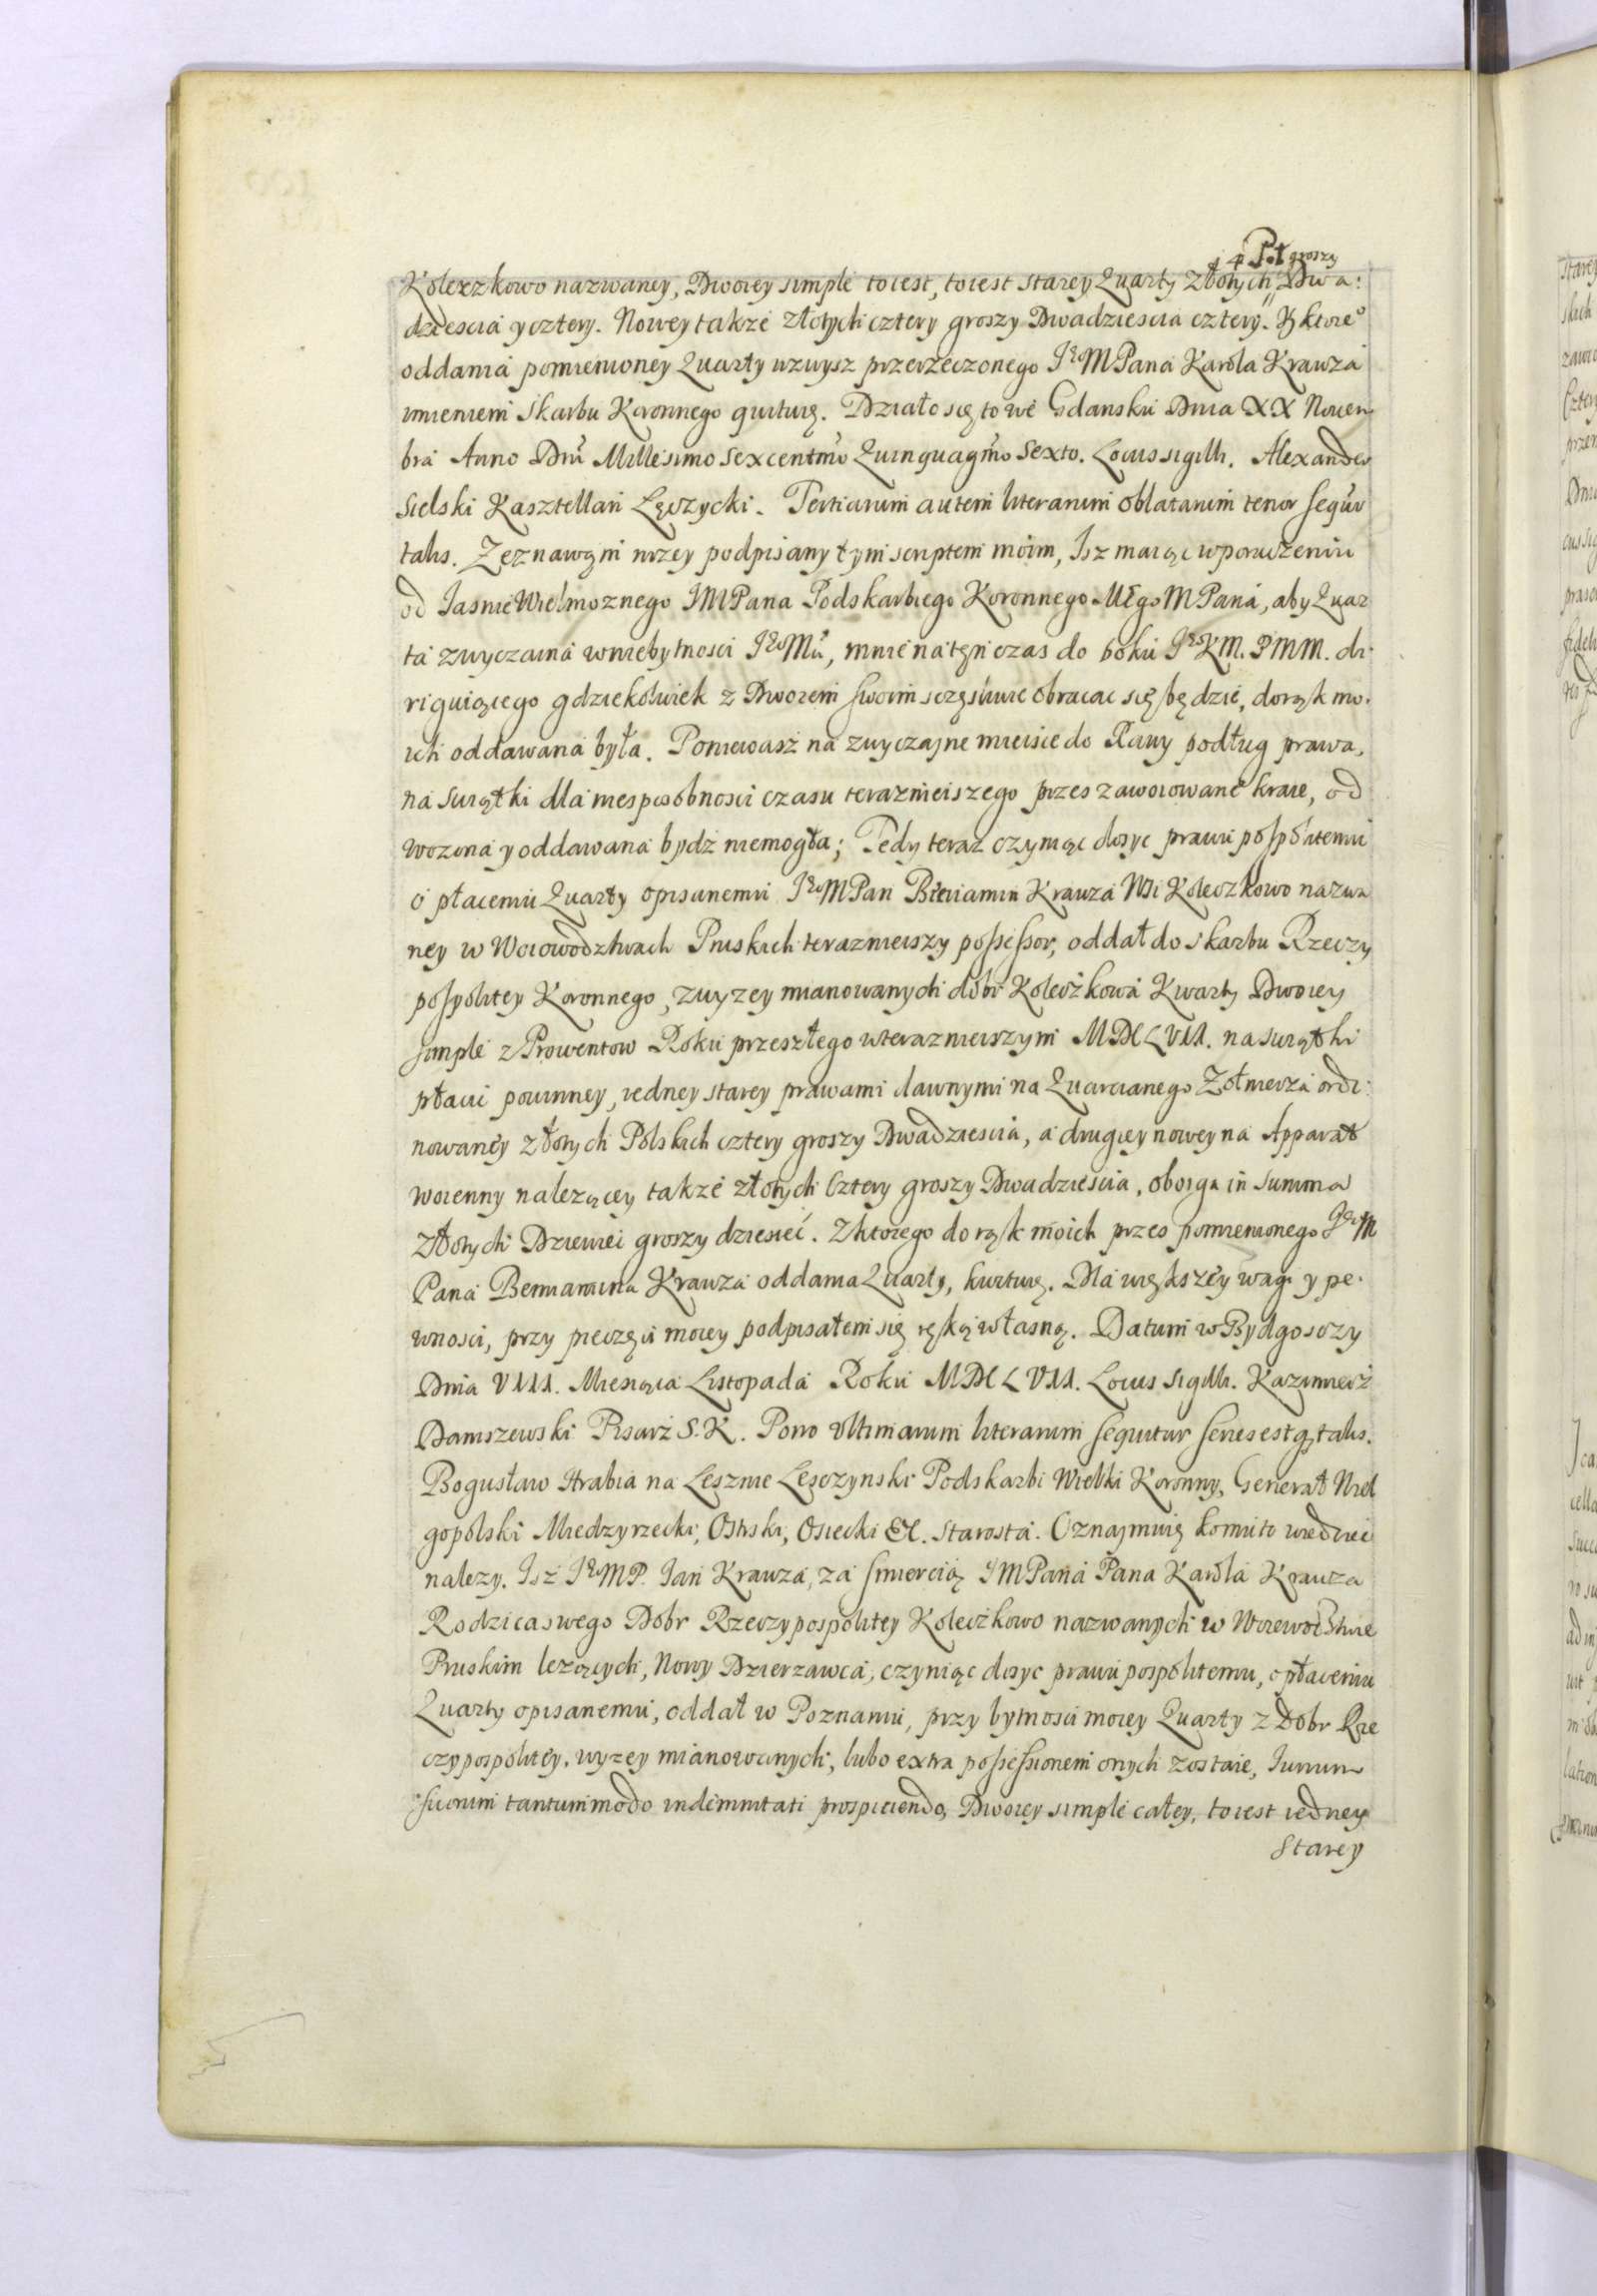 4 Pol. groszy
Koleczkowo nazwaney, Dwoiey simple toiest, toiest starey Quarty złotych Dwa:
dziescia y cztery. Nowey takze złotych cztery groszy Dwadziescia cztery. Z ktore°
oddania pomienioney Quarty wzwysz przerzeczonego JegoMPana Karola Krauza
imieniem Skarbu Koronnego quituię. Działo się to we Gdansku Dnia XX Novem
bra Anno Dni Millesimo sexcentmo Quinquagmo sexto. Locus sigilli. Alexander
Sielski Kasztellan Łęczycki. Tertiarum autem literarum oblatarum tenor sequr
talis. Zeznawam nizey podpisany tym scriptem moim, Isz maiąc w poruczeniu
od Iasnie Wielmoznego IMPana Podskarbiego Koronnego MEgo MPana, aby Quar
ta zwyczaina w niebytnosci JegoMu, mnie na tęn czas do boku JegoKM. PMM. di:
riguiącego gdziekolwiek z Dworem swoim sczęsliwie obracac się będzie, do rąk mo:
ich oddawana była. Poniewasz na zwyczajne mieisce do Rawy podług prawa,
na swiątki dla niesposobnosci czasu terazniejszego przes zawoiowane kraie, od
wozona y oddawana bydz niemogła; Tedy teraz czyniąc dosyc prawu pospolitemu
o płaceniu Quarty opisanemu JegoMPan Beniamin Krauza Wsi Koleczkowo nazwa
ney w Woiowodztwach Pruskich teraznieiszy possessor, oddał do skarbu Rzeczy
pospolitey Koronnego, zwyzey mianowanych dobr Koleczkowa Kwarty Dwoiey
simple z Prowentow Roku przeszłego w terazniejszym MDCLVII. na swiątki
płacic powinney, iedney starey prawami dawnymi na Quarcianego Zołnierza ordi:
nowaney złotych Polskich cztery groszy Dwadziescia, a drugiey nowey na Apparat
woienny nalezącey takze złotych Cztery groszy Dwadziescia, oboiga in summa
złotych Dziewiec groszy dziesiec. Z ktorego do rąk moich przes pomienionego JegoM
Pana Beniamina Krauza oddania Quarty, kwituię. Dla większey wagi y pe:
wnosci, przy pieczęci moiey podpisałem się ręką własną. Datum w Bydgosczy
Dnia VIII. Miesiąca Listopada Roku MDCLVII. Locus Sigilli. Kazimierz
Daniszewski Pisarz S.K. Porro Ultimarum literarum sequitur series estq talis.
Bogusław Hrabia na Lesznie Lesczynski Podskarbi Wielki Koronny, Generał Wiel
gopolski Miedzyrzecki, Ostrski, Osiecki Et. Starosta. Oznajmuię komu to wiedziec
nalezy. Isz JegoMP. Ian Krauza, za smiercią IMPana Pana Karola Krauza
Rodzica swego Dobr Rzeczypospolitey Koleczkowo nazwanych w Woiewodztwie
Pruskim lezących, Nowy Dzierzawca, czyniąc dosyc prawu pospolitemu, o płaceniu
Quarty opisanemu, oddał w Poznaniu, przy bytnosci moiey Quarty z Dobr Rze
czypospolitey, wyzey mianowanych, lubo extra possessionem onych zostaie, Iurium
suorum tantummodo indemnitati prospiciendo, Dwoiey simple całey, toiest iedney
Starey